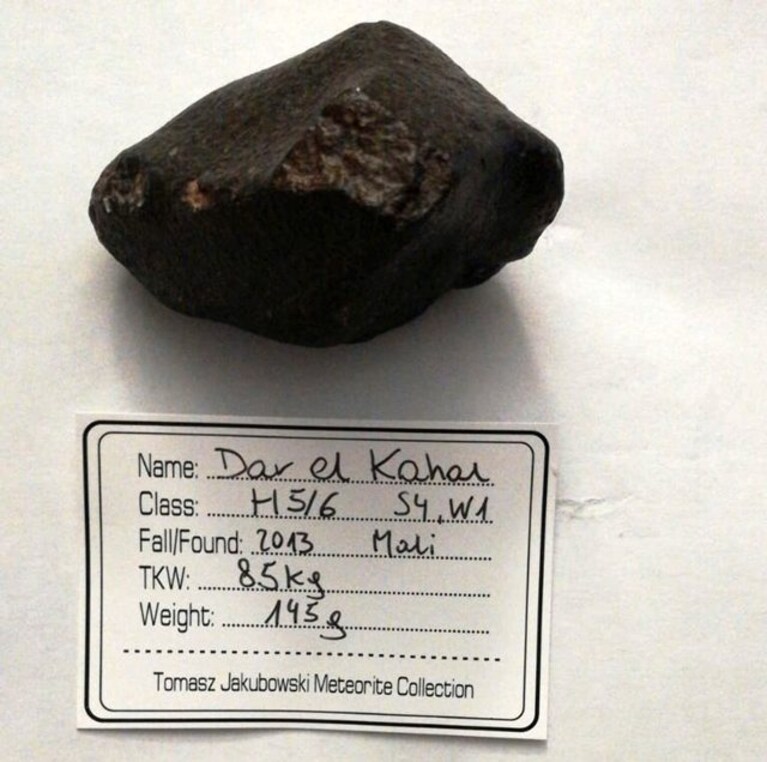 Name: Dar el Kahal
Class: H5/6 S4, W1
Fall/Found: 2013 Mali
TKW: 85kg
Weight: 145g
Tomasz Jakubowski Meteorite Collection